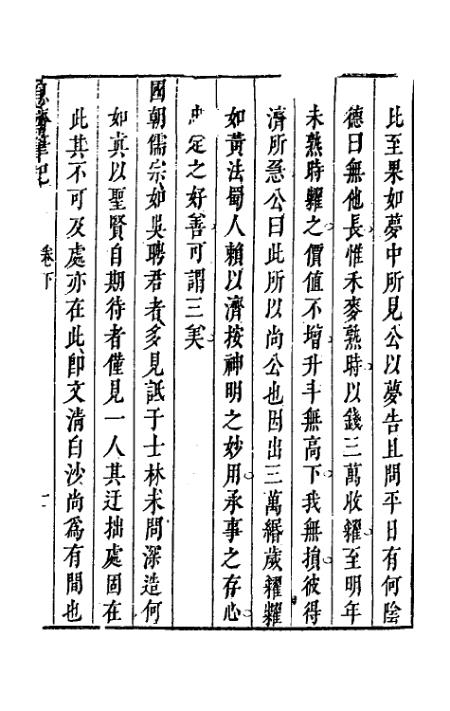 比至果如夢中所見公以夢告且問平日有何陰
德曰無他長惟禾麥熟時以錢三萬收糴至明年
未熟時糶之價值不增升斗無高下我無損彼得
濟所急公曰此所以尚公也因出三萬緡歲糴糶
如黃法蜀人賴以濟按神明之妙用承事之存心
忠定之好善可謂三美
國朝儒宗如吳聘君者多見詆于士林未問深造何
如真以聖賢自期待者僅見一人其迂拙處固在
此其不可及處亦在此即文清白沙尚為有間也
筆記
卷下